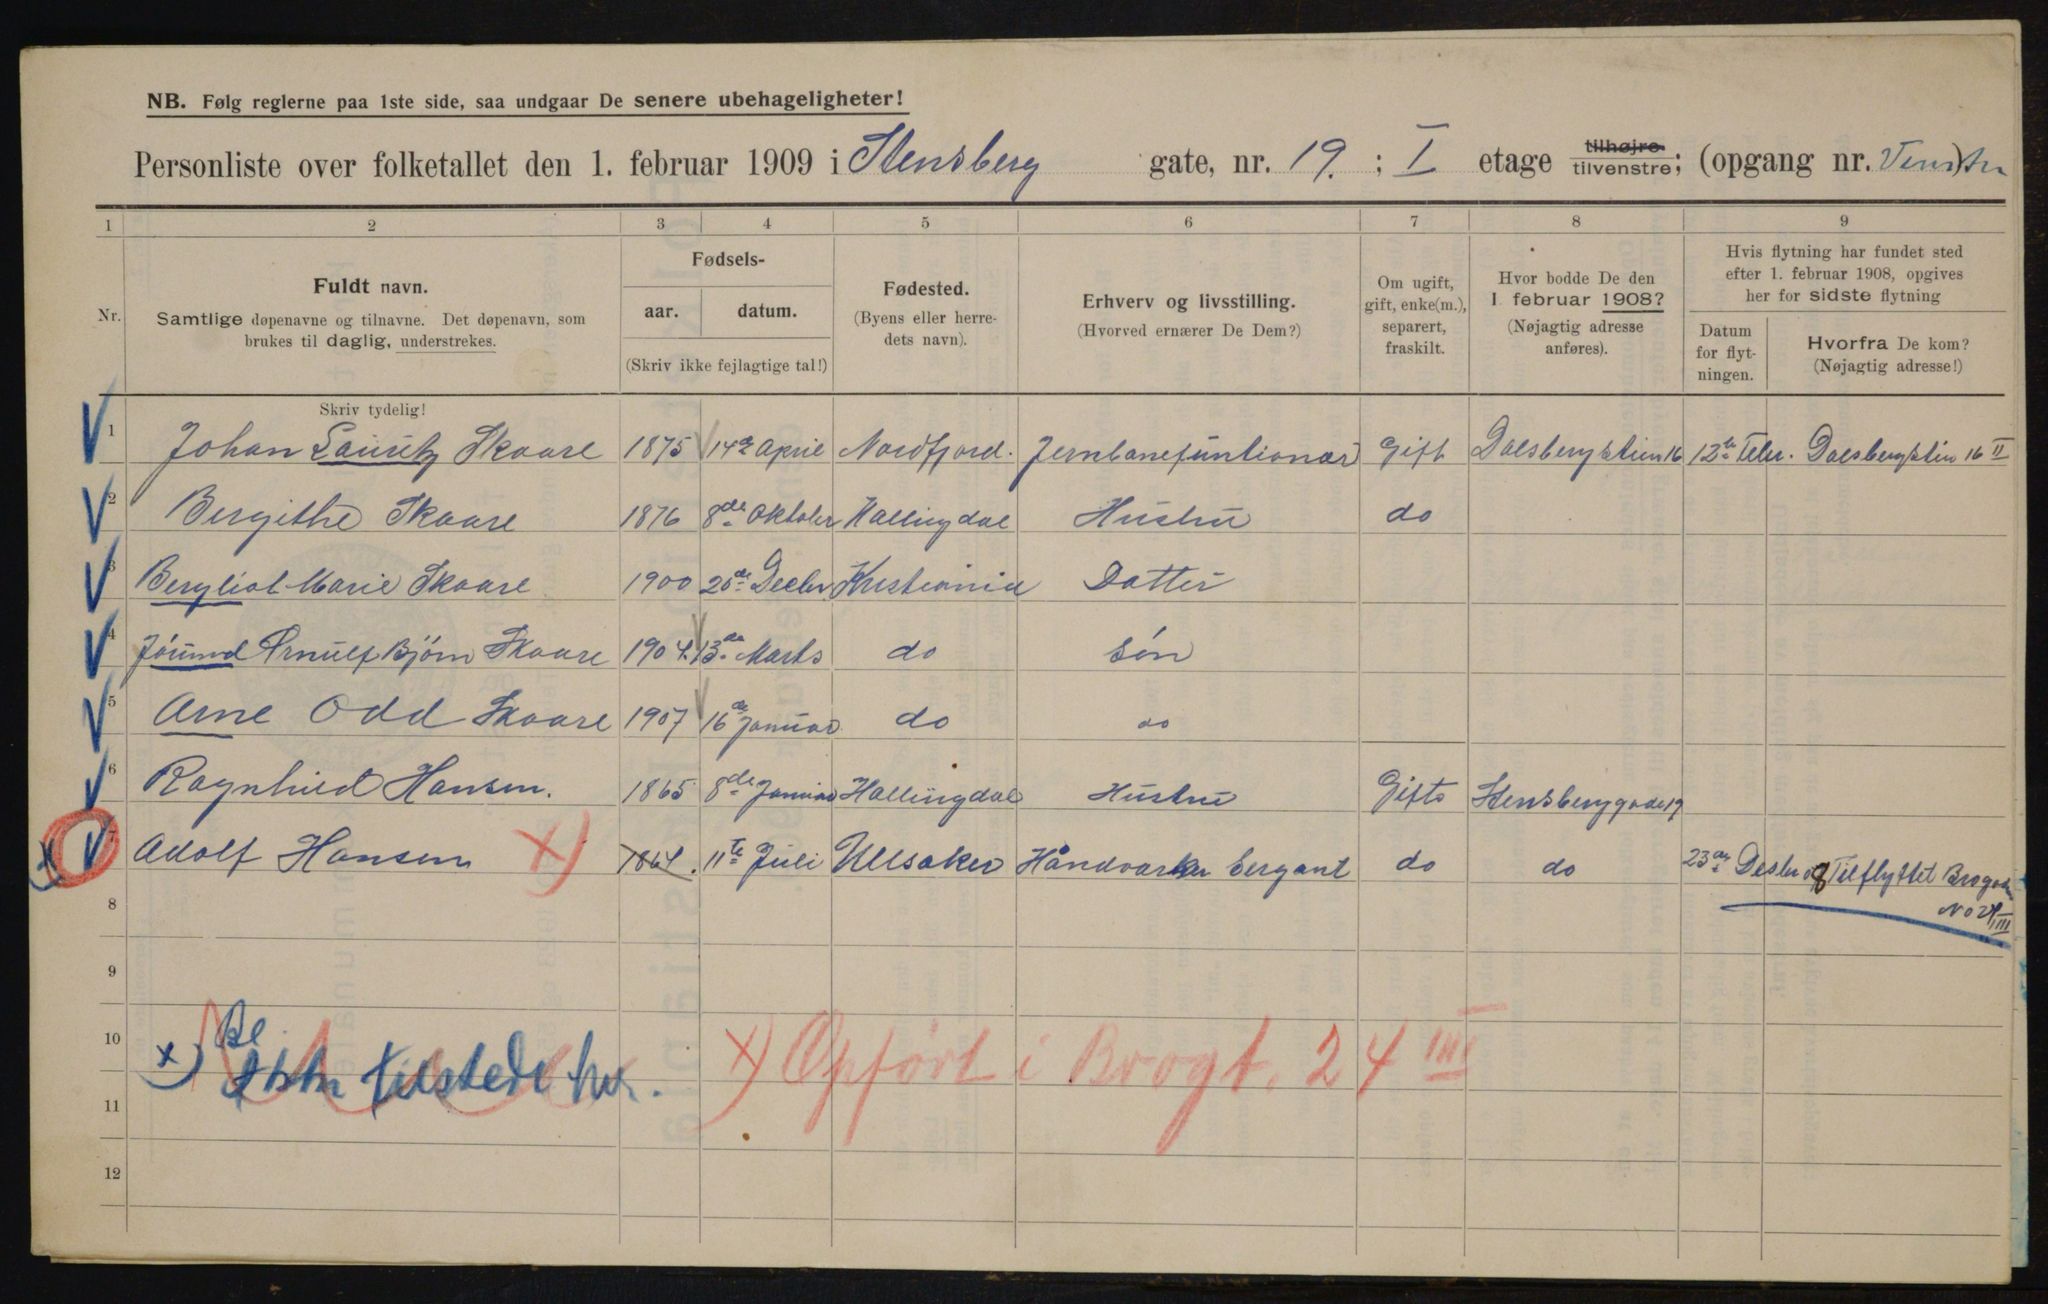 NB. Følg reglerne paa 1ste side, saa undgaar De senere ubehageligheter!
Personliste over folketallet den 1. februar 1909 i Stensberg gate, nr. 19. ; I etage tilhøjre tilvenstre; (opgang nr. Venstre)
1 2 3 4 5 6 7 8 9
Nr.
Fuldt navn.
Samtlige døpenavne og tilnavne. Det døpenavn, som
brukes til daglig, understrekes.
Fødsels-
aar. datum.
(Skriv ikke fejlagtige tal!)
Fødested.
(Byens eller herre-
dets navn).
Erhverv og livsstilling.
(Hvorved ernærer De Dem?)
Om ugift,
gift, enke(m.),
separert,
fraskilt.
Hvor bodde De den
1. februar 1908?
(Nøjagtig adresse
anføres).
Hvis flytning har fundet sted
efter 1. februar 1908, opgives
her for sidste flytning
Datum
for flyt-
ningen.
Hvorfra De kom?
(Nøjagtig adresse!)
Skriv tydelig!
1 Johan Lauritz Skaare 1875 14de April Nordfjord. Jernbanefuntionær Gift Dalsbergstien 16 12te Febr. Dalsbergstin 16 II
2 Bergithe Skaare 1876 8de Oktober Hallingdal Hustru do
3 Bergliot Marie Skaare 1900 20de Decbr Kristiania Datter
4 Jörund Arnulf Björn Skaare 1904. 13de Marts do Sön
5 Arne Odd Skaare 1907 16de Januar do do
6 Ragnhild Hansen. 1865 8de Januar Hallingdal Hustru Gifts Stensberggade 19
7 Adolf Hansen x) 1864. 11te Juli Ullsaker Håndværker Sergant do do 23de Desbr 08 Tilflyttet Brogaden
No 24 III
8
9
10
11
12
x) Bl
tilstede
x) Opført i Brogt. 24 III